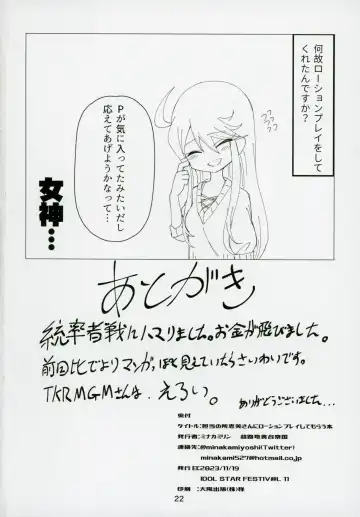 何故ローションプレイをして
くれたんですか？
Pが気に入ってたみたいだし
応えてあげようかなって…
女神…
あとがき
統率者戦にハマりました。お金が飛びました。
前回比でよりマンガっぽく見えていたらさいわいです。
TKRMGMさんは、えろい。
ありがとうございました...
奥付
タイトル：担当の所恵美さんにローションプレイしてもらう本
発行者：ミナカミリン
連絡先：@minakamiyoshi(Twitter)
minakami527@hotmail.co.jp
発行日：2023/11/19
IDOL STAR FESTIV@L 11
印刷：大陽出版(株)様
22